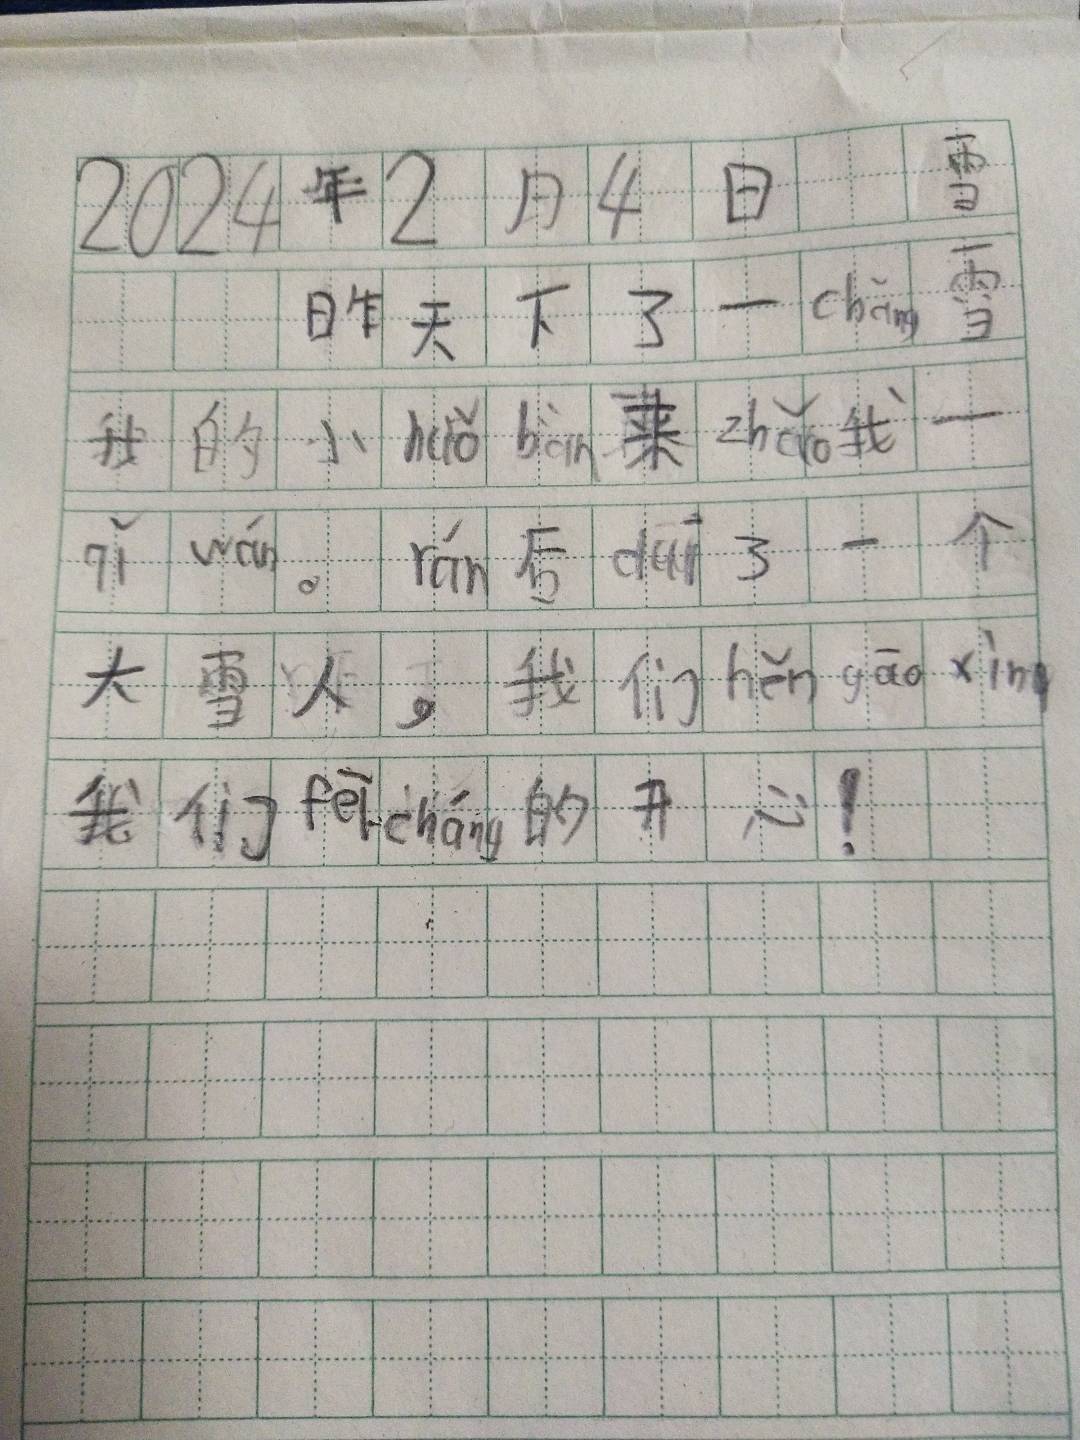 2024年2月4日 雪
昨天下了一chǎng雪
我的小huǒbàn来zhǎo我一
qǐ wán。rán后duī了一个
大雪人,我们hěn gāo xìng
我们fēi cháng的开心!